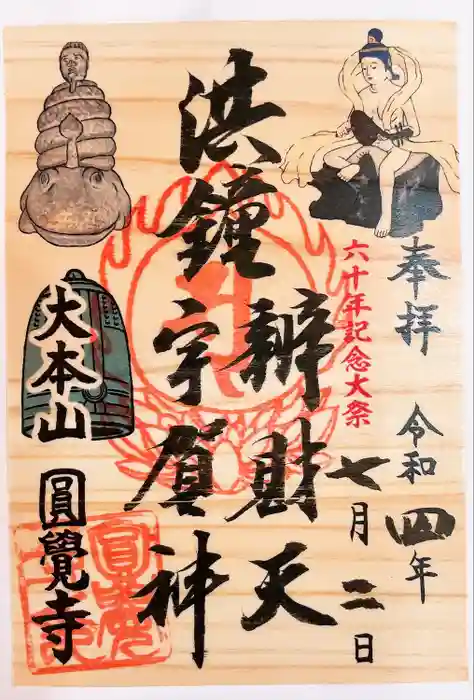 奉拝
令和四年
七月二日
六十年記念大祭
辨財天
洪鐘宇賀神
大本山
圓覺寺